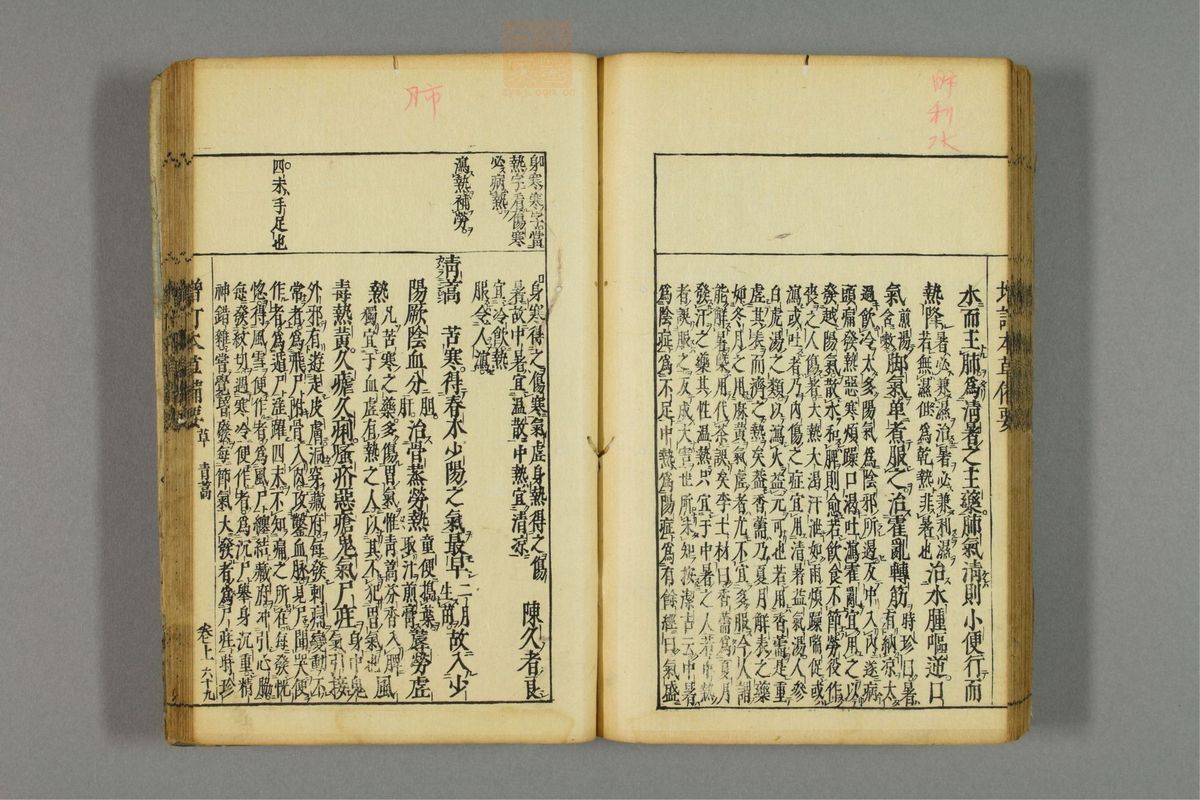 肺利水
水而主肺爲清暑之主藥肺氣清則小便行而
熱降暑必兼濕治暑必兼利濕
若無濕但爲乾熱非暑也治水腫嘔逆口
氣煎湯含漱脚氣單煮服之治霍亂轉筋時珍曰暑
有納涼太
過飲冷太多陽氣爲陰邪所遏反中入内遂病
頭痛發熱惡寒煩躁口渴吐瀉霍亂宜用之以
發越陽氣散水和脾則愈若飲食不節勞役作
喪之人傷暑大熱大渴汗泄如雨煩躁喘促或
瀉或吐者乃内傷之症宜用清暑益氣湯人參
白虎湯之類以瀉火益元可也若用香薷是重
虚其表而濟之熱矣葢香薷乃夏月解表之藥
如冬月之用麻黄氣虚者尤不宜多服今人謂
能解暑槩用代茶誤矣李士材曰香薷爲夏月
發汗之藥其性温熱只宜于中暑之人若中熱
者誤服之反成大害世所未知按潔古云中暑
爲陰症爲不足中熱爲陽症爲有餘經曰氣盛
增訂本草備要
肺
身寒寒字當
熱字看傷寒
必病熱
瀉熱補勞
四末手足也
身寒得之傷寒氣虚身熱得之傷
暑故中暑宜温散中熱宜清凉陳久者良
宜冷飲熱
服令人瀉
青蒿苦寒得春木少陽之氣最早二月生苗故入少
陽厥陰血分胆肝治骨蒸勞熱童便搗葉取汁煎膏蓐勞虚
熱凡苦寒之藥多傷胃氣惟青蒿芬香入脾
獨宜于血虚有熱之人以其不犯胃氣也風
毒熱黄久瘧久痢瘙疥惡瘡鬼氣尸疰身中鬼
氣引接
外邪有遊走皮膚洞穿藏府每發刺痛變動不
常者爲飛尸附骨入肉攻鑿血脉見尸聞哭便
作者爲遁尸淫躍四末不知痛之所在每發恍
惚得風雪便作者爲風尸纏結藏府冲引心脇
每發絞切遇寒冷便作者爲沉尸舉身沉重精
神錯雜嘗覺昏廢每節氣大發者爲尸疰時珍
增訂本草備要 草 青蒿 卷上 六十九